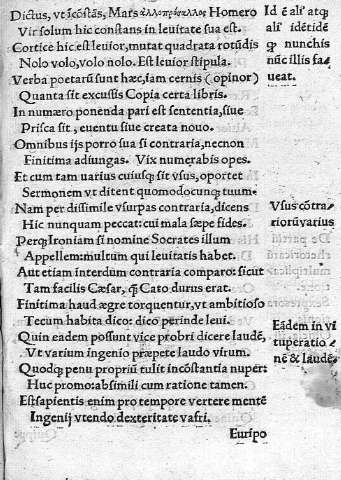 Dictus, vt icõstãs, Mars ἀλλοπρόσαλλος Homero
Vir solum hic constans in leuitate sua est.
Cortice hic est leuior, mutat quadrata rotũdis
Nolo volo, volo nolo. Est leuior stipula.
Verba poetarũ sunt hæc, iam cernis (opinor)
Quanta sit excussis Copia certa libris.
In numæro ponenda pari est sententia, siue
Prisca sit, euentu siue creata nouo.
Omnibus ijs porro sua si contraria, necnon
Finitima adiungas. Vix numerabis opes.
Et cum tam uarius cuiusq̃ sit vsus, oportet
Sermonem vt ditent quomodocunq; tuum.
Nam per dissimile vsurpas contraria, dicens
Hic nunquam peccat: cui mala sæpe fides.
Perq; Ironiam si nomine Socrates illum
Appellem: multum qui leuitatis habet.
Aut etiam interdum contraria comparo: sicut
Tam facilis Cæsar, q̃ Cato durus erat.
Finitima haud ægre torquentur, vt ambitioso
Tecum habita dico: dico perinde leui.
Quin eadem possunt vice probri dicere laudẽ,
Vt varium ingenio præpete laudo virum.
Quodq; penu propriũ tulit incõstantia nuper:
Huc promo: absimili cum ratione tamen.
Est sapientis enim pro tempore vertere mentẽ
Ingenij vtendo dexteritate vafri.
Euripo
Id ẽ ali⁹ atq;
ali⁹ idẽtidẽ
q; nunchis
nũc illis fa
ueat.
Vsus cõtra
riorũ varius
Eãdem in vi
tuperatio
nẽ & laudẽ